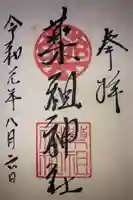 奉拝
薬祖神社
令和元年八月六日